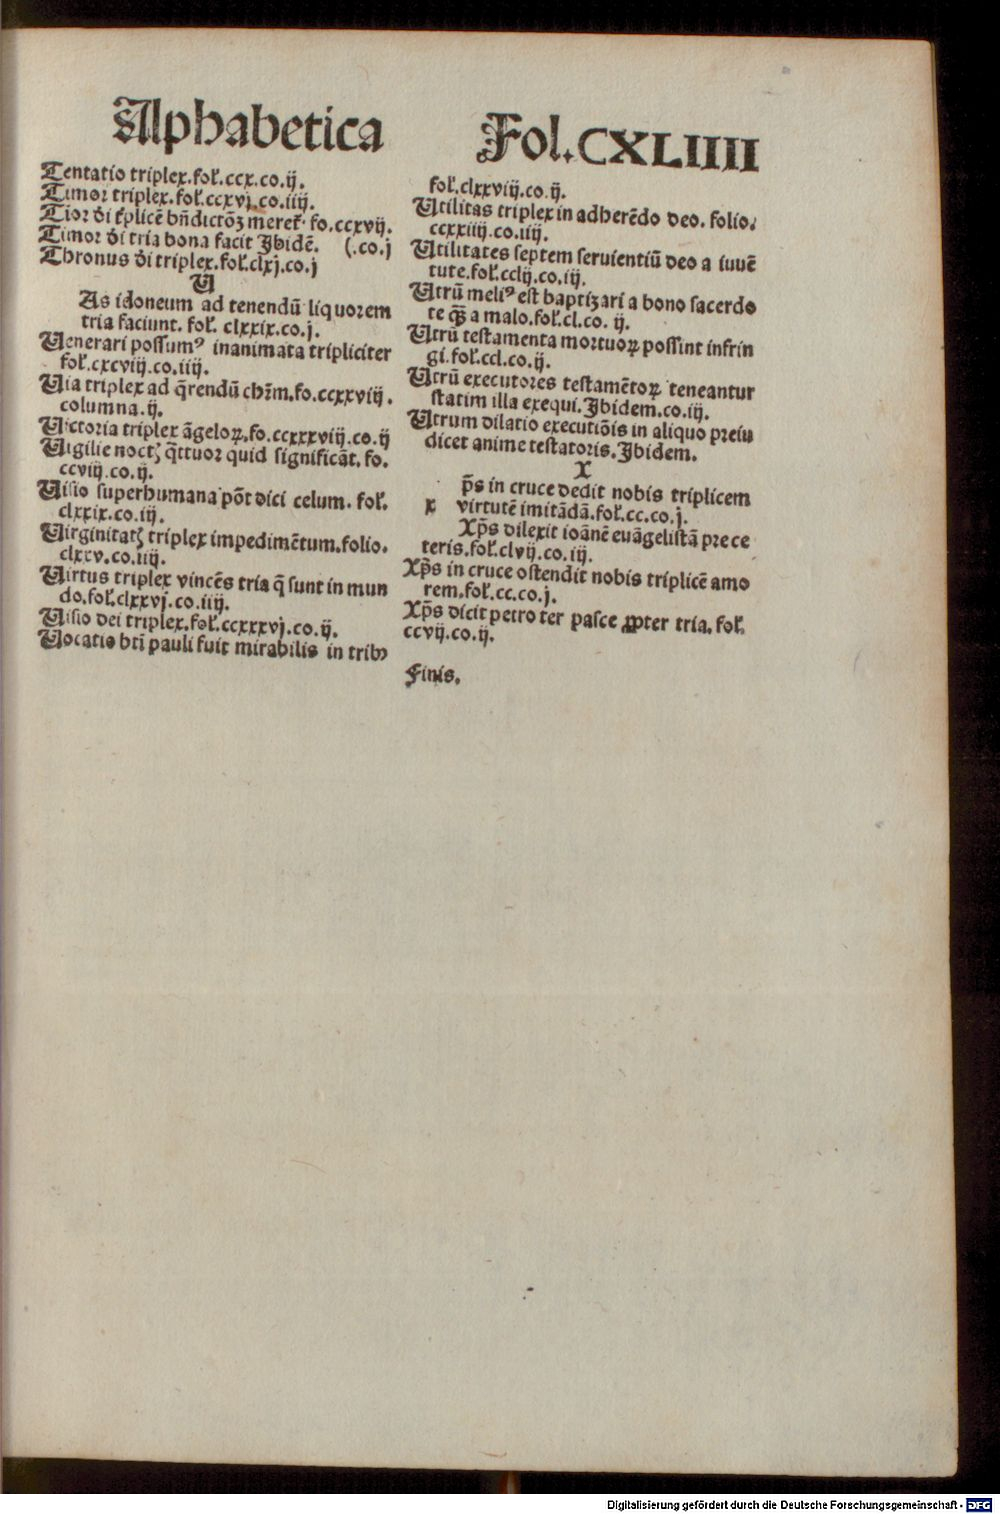 Alphabetica
Fol.CXLIIII
Tentatio triplex.foł.ccx.co.ij.
Timor triplex.foł.ccxvj.co.iiij.
Tior dī tṙplicē bn̄dictōꝫ meret̛. fo.ccxvij.
Timor dī tria bona facit Ibidē. (.co.j
Thronus dī triplex.foł.clxj.co.j
U
As idoneum ad tenendū liquorem
tria faciunt. foł. clxxix.co.j.
Uenerari possumꝰ inanimata tripliciter
foł.cxcviij.co.iiij.
Uia triplex ad q̄rendū chr̄m.fo.ccxxviij.
columna.ij.
Uictoria triplex āgeloꝝ.fo.ccxxxviij.co.ij
Uigilie noctꝭ q̄ttuor quid significāt. fo.
ccviij.co.ij.
Uisio superhumana pōt dici celum. foł.
clxxix.co.iij.
Uirginitatꝭ triplex impedimētum.folio.
clxxv.co.iiij.
Uirtus triplex vincēs tria q̄ sunt in mun
do.foł.clxxvj.co.iiij.
Uisio dei triplex.foł.ccxxxvj.co.ij.
Uocatio btī pauli fuit mirabilis in tribꝰ
foł.clxxviij.co.ij.
Utilitas triplex in adherēdo deo. folio.
ccxxiiij.co.iiij.
Utilitates septem seruientiū deo a iuuē
tute.foł.cclij.co.iij.
Utrū meliꝰ est baptizari a bono sacerdo
te qꝫ a malo.foł.cl.co. ij.
Utrū testamenta mortuoꝝ possint infrin
gi.foł.ccl.co.ij.
Utrū executores testamētoꝝ teneantur
statim illa exequi.Ibidem.co.iij.
Utrum dilatio executiōis in aliquo preiu
dicet anime testatoris.Ibidem.
X
p̄s in cruce dedit nobis triplicem
x virtutē imitādā.foł.cc.co.j.
Xp̄s dilexit ioānē euāgelistā prece
teris.foł.clvij.co.iij.
Xp̄s in cruce ostendit nobis triplicē amo
rem.foł.cc.co.j.
Xp̄s dicit petro ter pasce ꝓpter tria. foł.
ccvij.co.ij.
Finis.
Digitalisierung gefördert durch die Deutsche Forschungsgemeinschaft - DFG